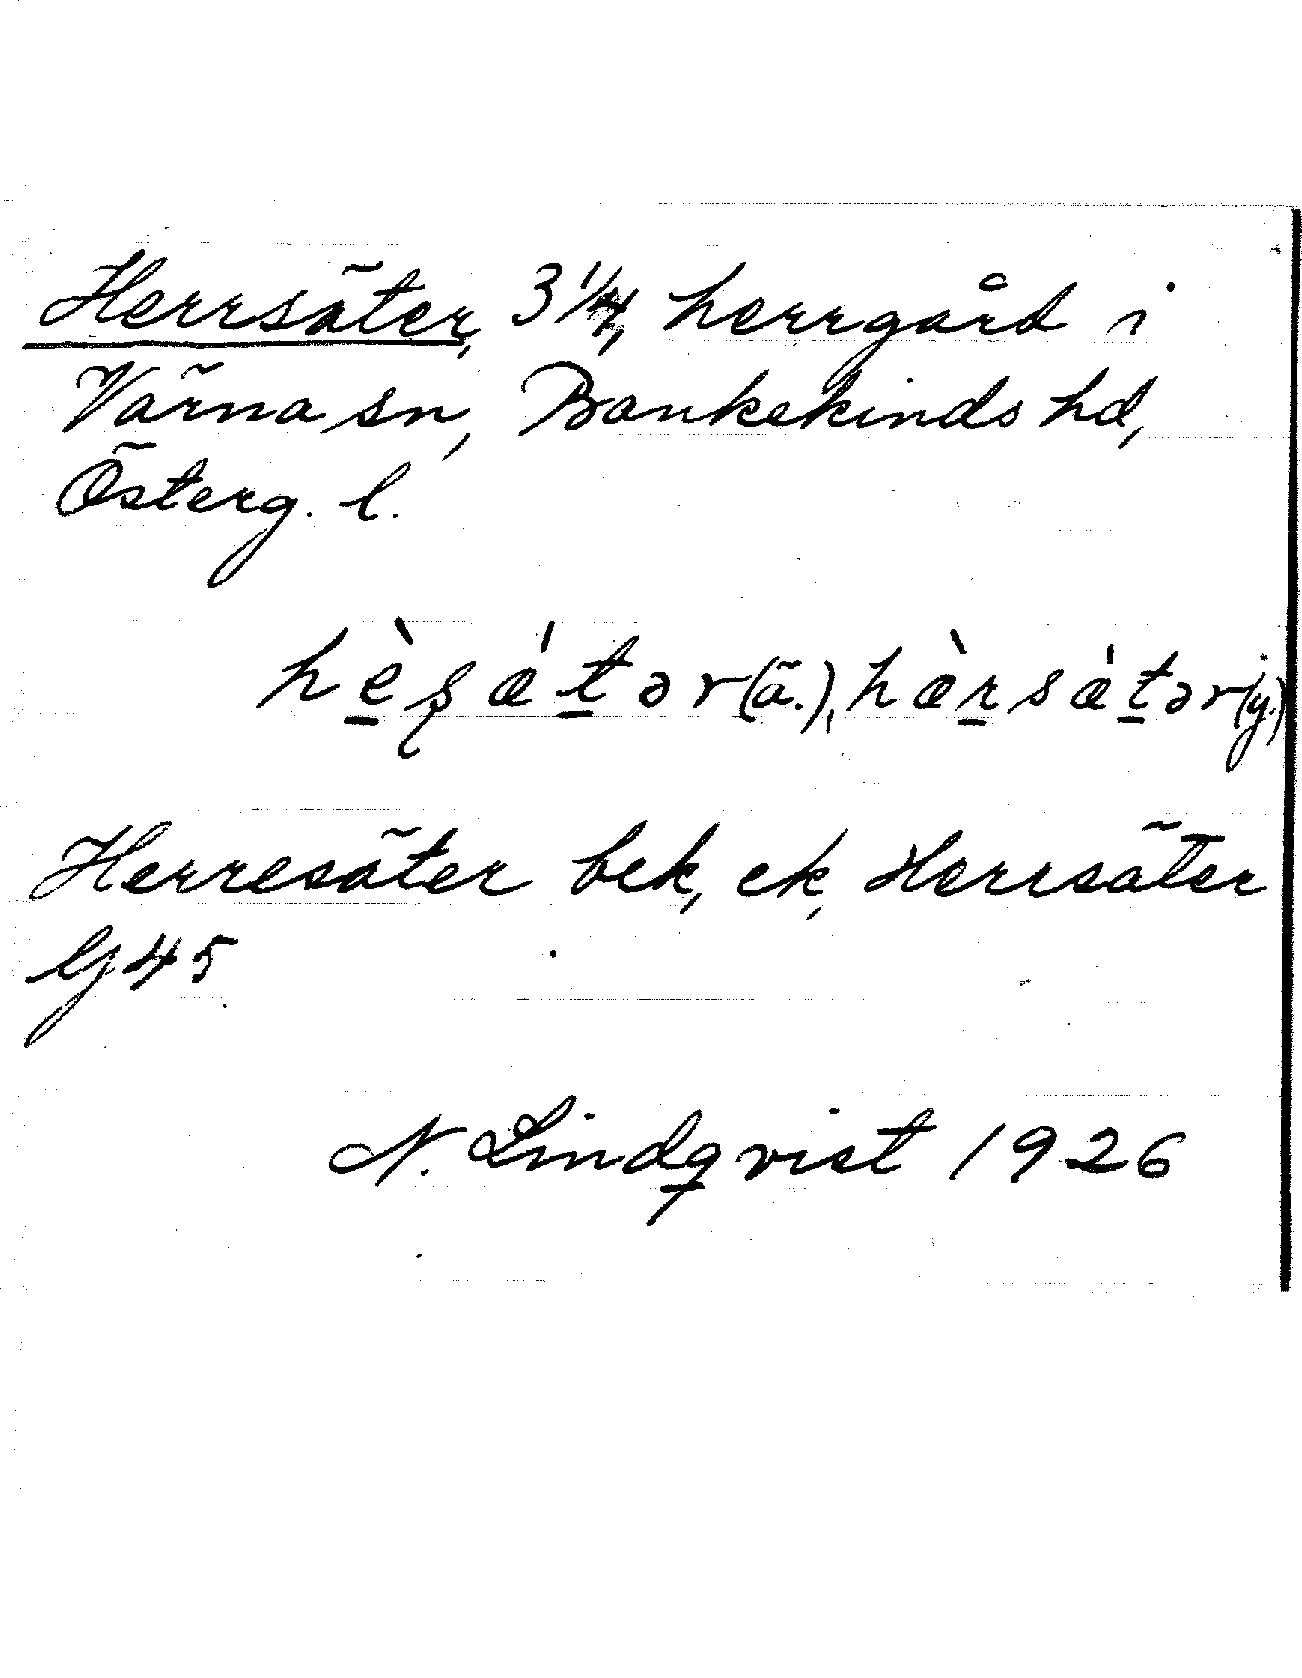 Herrsäter, 3 1/4, herrgård i
Värna sn, Bankekinds hd,
Österg. l.
hè̱ʂǽṯər (ä.), hæ̀ṟsǽṯər (y.)
Herresäter bek, ek, Herrsäter
G 45
N. Lindqvist 1926